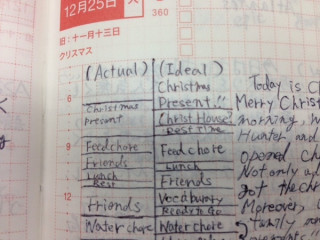 12月25日
360
旧:十一月十三日
クリスマス
(Actual) (Ideal)
Christmas
6
Christmas Present!!
present Christ House
Rest time
9
Feed chore Feed chore
Friends Lunch
Lunch Friends
Rest
12
Friends Vocabulary
Ready to Go
Water chore Water chore
Today is C
Merry Christ
morning, W
Hunter and
opened ch
Not only u
got the chr
Moreover,
family an